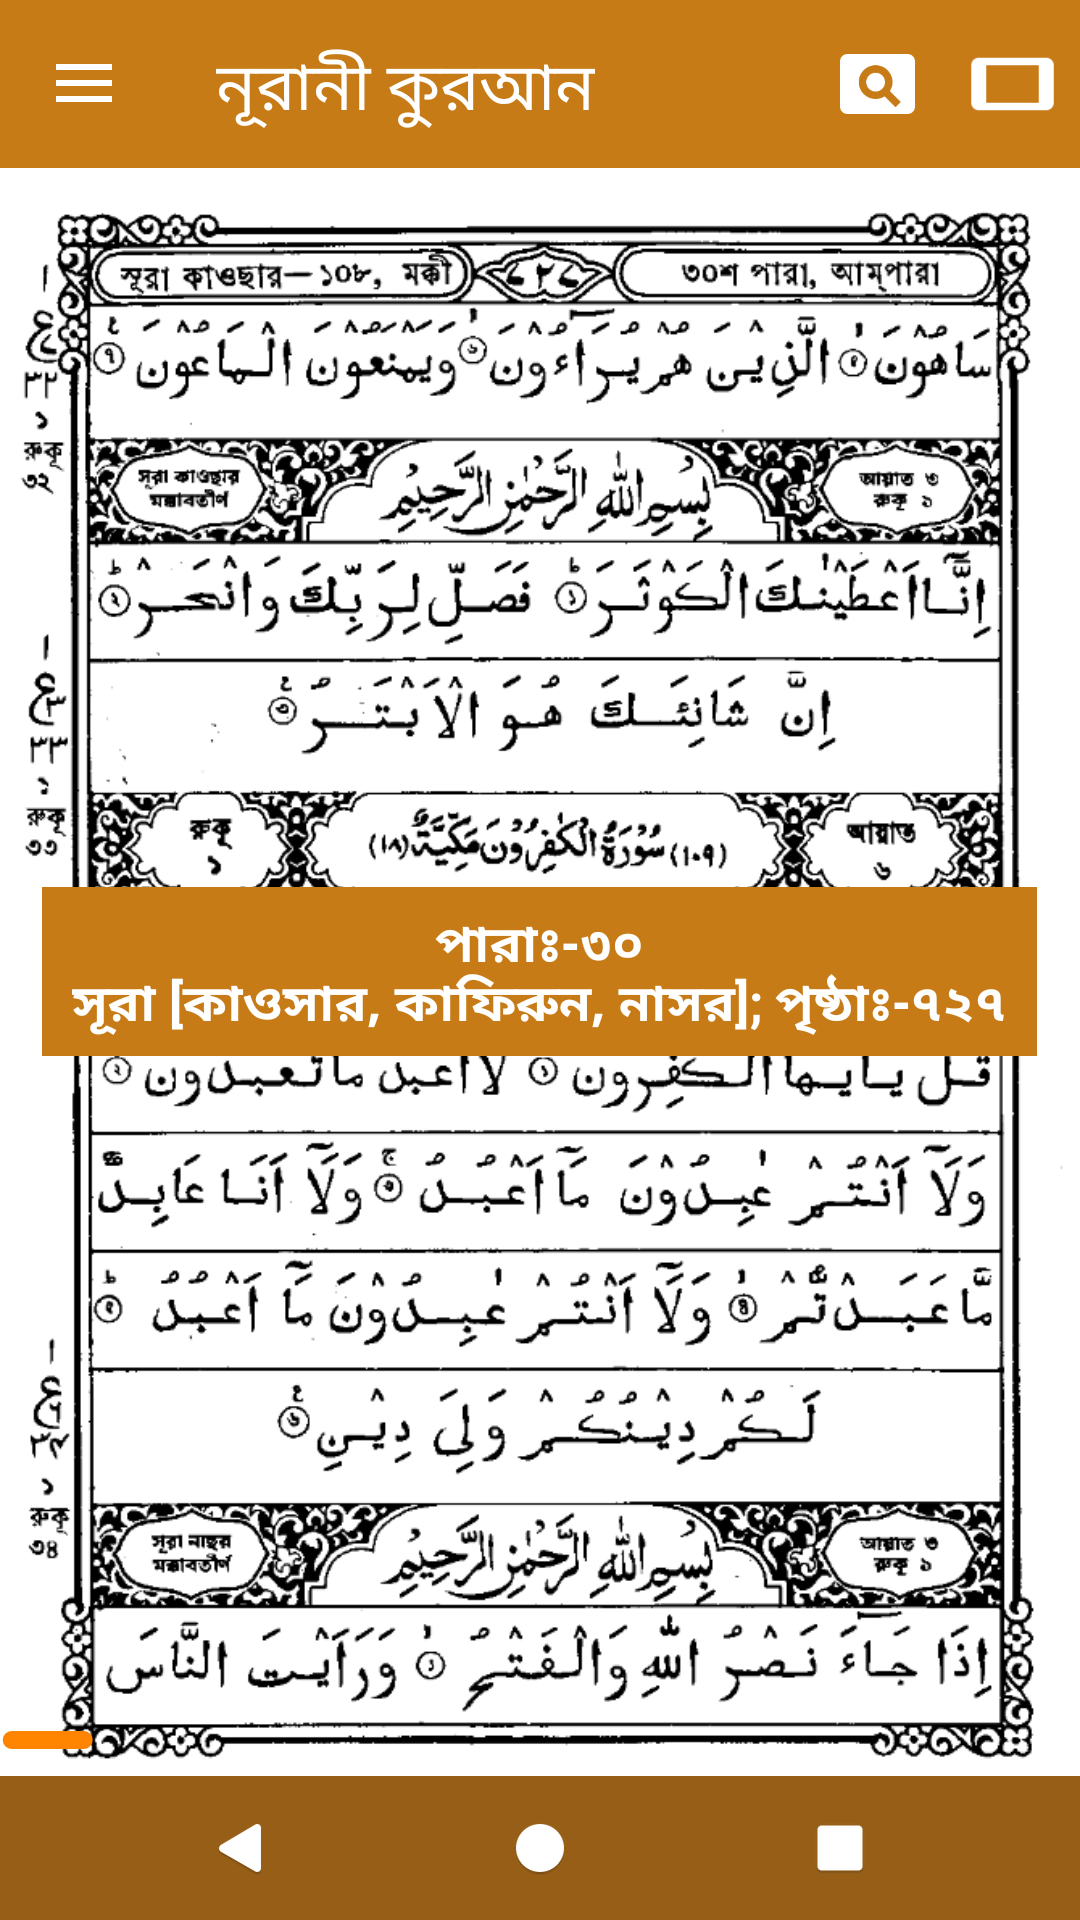 নূরানী কুরআন
সূরা কাওছার—১০৮, মক্কী
৭২৮
৩০শ পারা, আম্‌পারা
سَاهُوْنَ ۙ﴿۵﴾ الَّذِيْنَ هُمْ يُرَآءُوْنَ ۙ﴿۶﴾ وَيَمْنَعُوْنَ الْمَاعُوْنَ ﴿۷﴾
রুকূ
৩২
সূরা কাওছার
মক্কাবতীর্ণ
بِسْمِ اللّٰهِ الرَّحْمٰنِ الرَّحِيْمِ
আয়াত ৩
রুকূ ১
اِنَّاۤ اَعْطَيْنٰكَ الْكَوْثَرَ ؕ﴿۱﴾ فَصَلِّ لِرَبِّكَ وَانْحَرْ ؕ﴿۲﴾
اِنَّ شَانِئَكَ هُوَ الْاَبْتَرُ ﴿۳﴾
রুকূ
৩৩
রুকূ
১
(١٠٩) سُوْرَةُ الْكٰفِرُوْنَ مَكِّيَّةٌ (١٨)
আয়াত
৬
পারাঃ-৩০
সূরা [কাওসার, কাফিরুন, নাসর]; পৃষ্ঠাঃ-৭২৭
قل يايها الكفرون ﴿۱﴾ لا اعبد ما تعبدون ﴿۲﴾
وَلَاۤ اَنْتُمْ عٰبِدُوْنَ مَاۤ اَعْبُدُ ۚ﴿۳﴾ وَلَاۤ اَنَا عَابِدٌ
مَّا عَبَدْتُّمْ ۙ﴿۴﴾ وَلَاۤ اَنْتُمْ عٰبِدُوْنَ مَاۤ اَعْبُدُ ؕ﴿۵﴾
لَكُمْ دِيْنُكُمْ وَلِيَ دِيْنِ ﴿۶﴾
রুকূ
৩৪
সূরা নাছর
মক্কাবতীর্ণ
بِسْمِ اللّٰهِ الرَّحْمٰنِ الرَّحِيْمِ
আয়াত ৩
রুকূ ১
اِذَا جَآءَ نَصْرُ اللّٰهِ وَالْفَتْحُ ۙ﴿۱﴾ وَرَاَيْتَ النَّاسَ